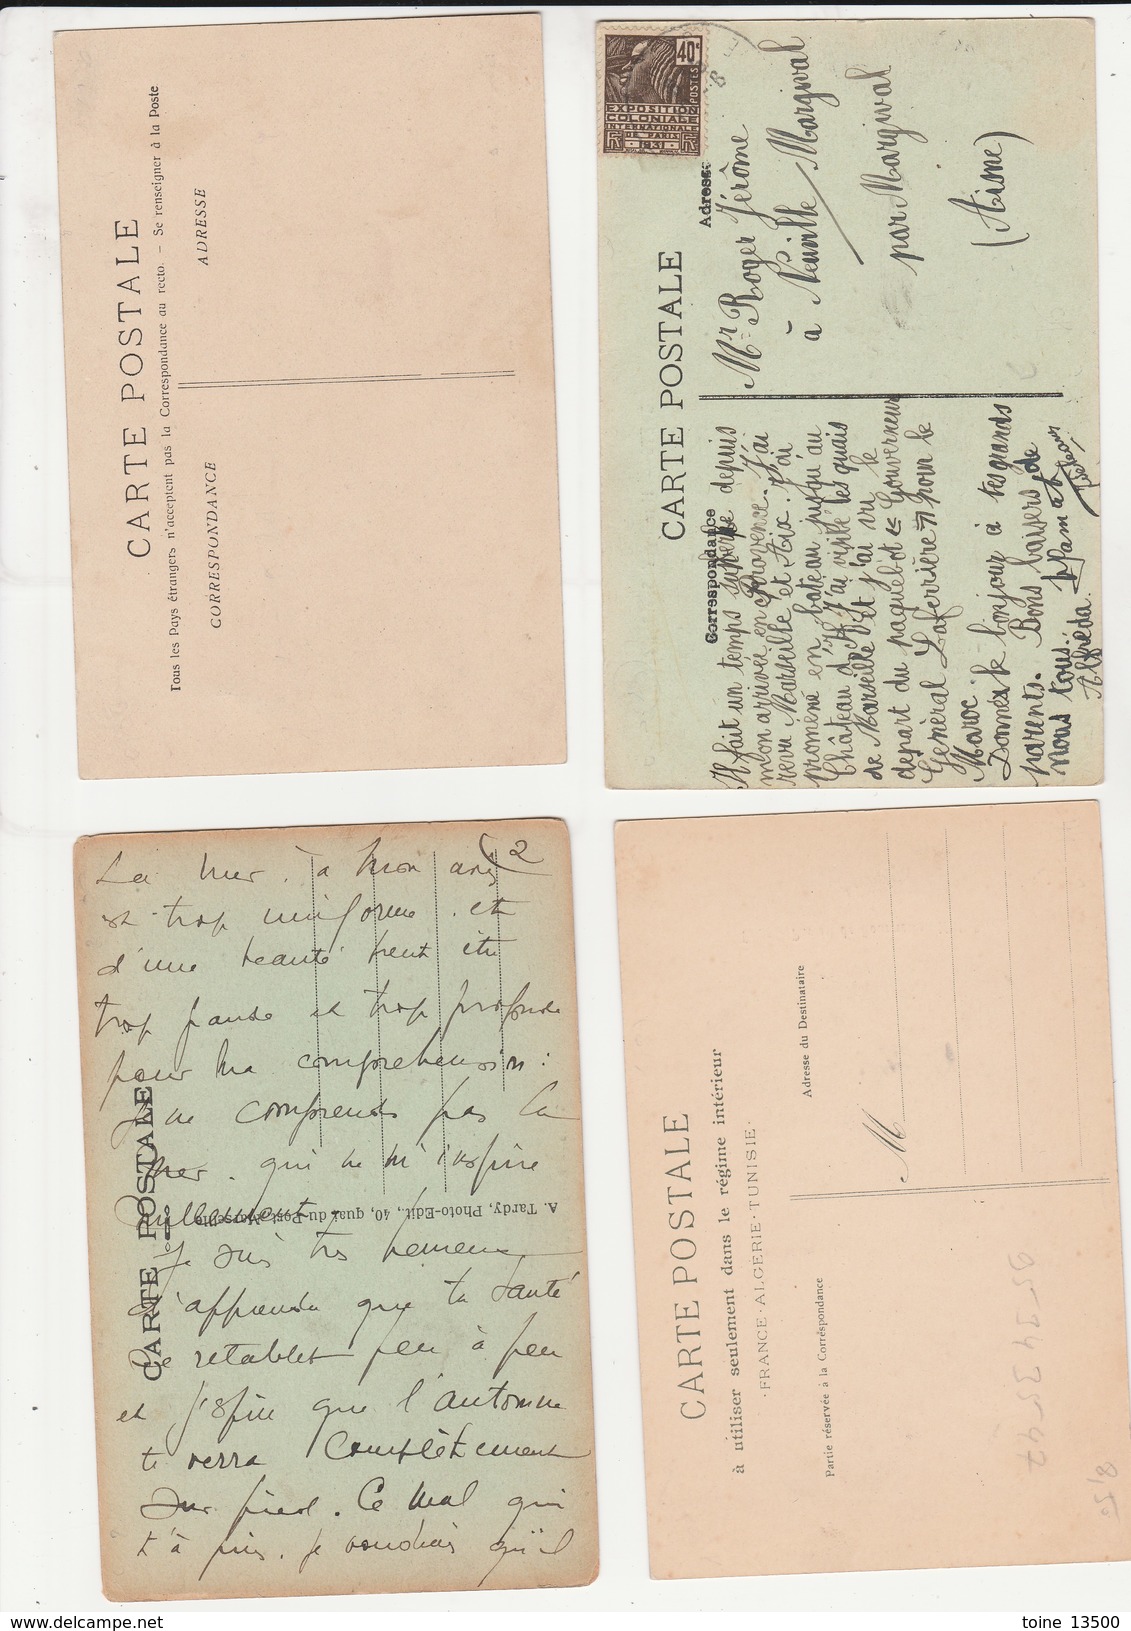 CARTE POSTALE
Tous les Pays étrangers n'acceptent pas la Correspondance au recto. - Se renseigner à la Poste
CORRESPONDANCE
ADRESSE
40c
POSTES
EXPOSITION
COLONIALE
INTERNATIONALE
DE PARIS
1931
CARTE POSTALE
Correspondance
Adresse
Il fait un temps superbe depuis
mon arrivée en Provence. J'ai
revu Marseille et Aix. J'ai
promené en bateau jusqu'au
Château d'If. J'ai visité les quais
de Marseille et j'ai vu le
depart du paquebot "Gouverneur
Général Laferrière" pour le
Maroc.
Donnes le bonjour à tes grands
parents. Bons baisers de
nous tous.
Alfreda
Mr Roger Jérôme
à Neuville/Margival
par Margival
(Aisne)
2
La mer, à mon avis
est trop uniforme et
d'une beauté peut être
trop grande et trop profonde
pour ma compréhension.
Je ne comprends pas la
mer, qui ne m'inspire
nullement.
Je suis très heureux
d'apprendre que ta santé
se rétablit peu à peu
et j'espère que l'automne
te verra complètement
sur pied. Ce mal qui
t'a pris, je voudrais qu'il
CARTE POSTALE
A. Tardy, Photo-Edit., 40, quai du Port, Marseille
CARTE POSTALE
à utiliser seulement dans le régime intérieur
·FRANCE·ALGERIE·TUNISIE·
Partie réservée à la Correspondance
Adresse du Destinataire
M
toine 13500